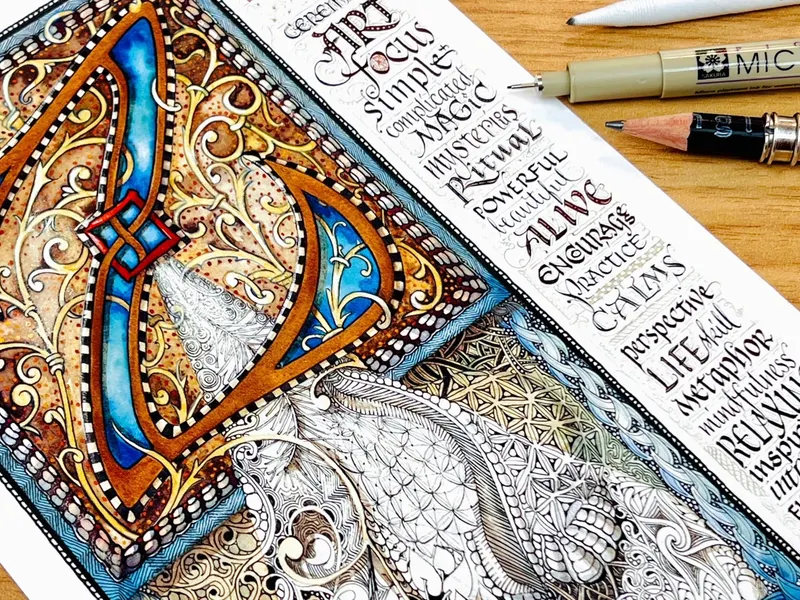 ART
focus
simple
complicated
MAGIC
MYSTERIES
Ritual
POWERFUL
beautiful
ALIVE
ENCOURAGES
Practice
CALMS
perspective
LIFE skill
metaphor
mindfulness
SAKURA
MIC